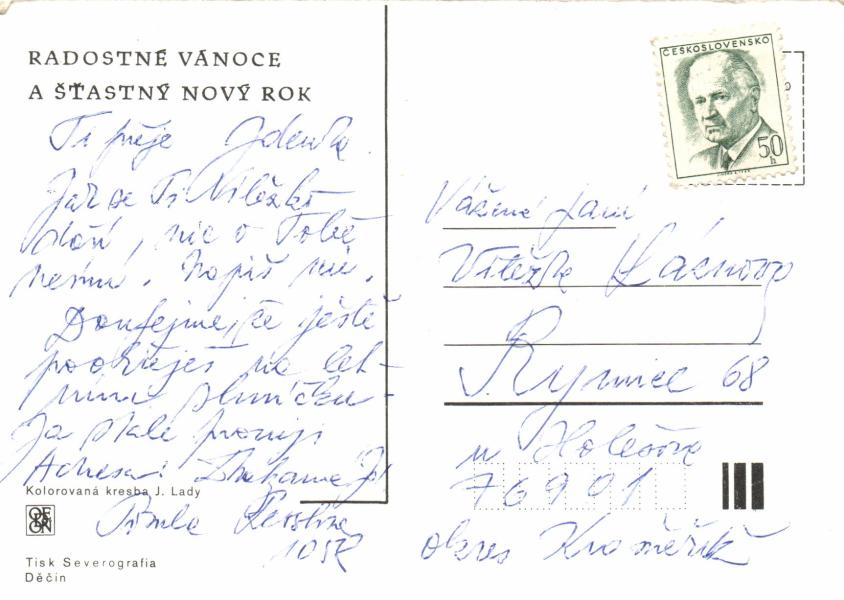 RADOSTNÉ VÁNOCE
A ŠŤASTNÝ NOVÝ ROK
Ti přeje Zdenka.
Jak se Ti Vítězko
daří, nic o Tobě
nevím. Napiš mi.
Doufejme, že ještě
pookřeješ na let-
ním sluníčku -
Já stále
Adresa:
Kolorovaná kresba J. Lady
ODEON
105R
Tisk Severografia
Děčín
ČESKOSLOVENSKO
50
h
Vážená paní
Vítězka
Rymice 68
u Holešova
76901
okres Kroměříž